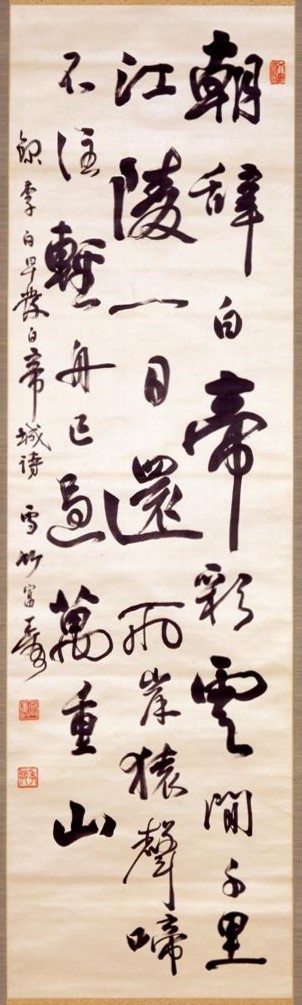 朝辞白帝彩雲間千里
江陵一日還兩岸猿聲啼
不住輕舟已過萬重山
錄李白早發白帝城詩 雪竹富壽